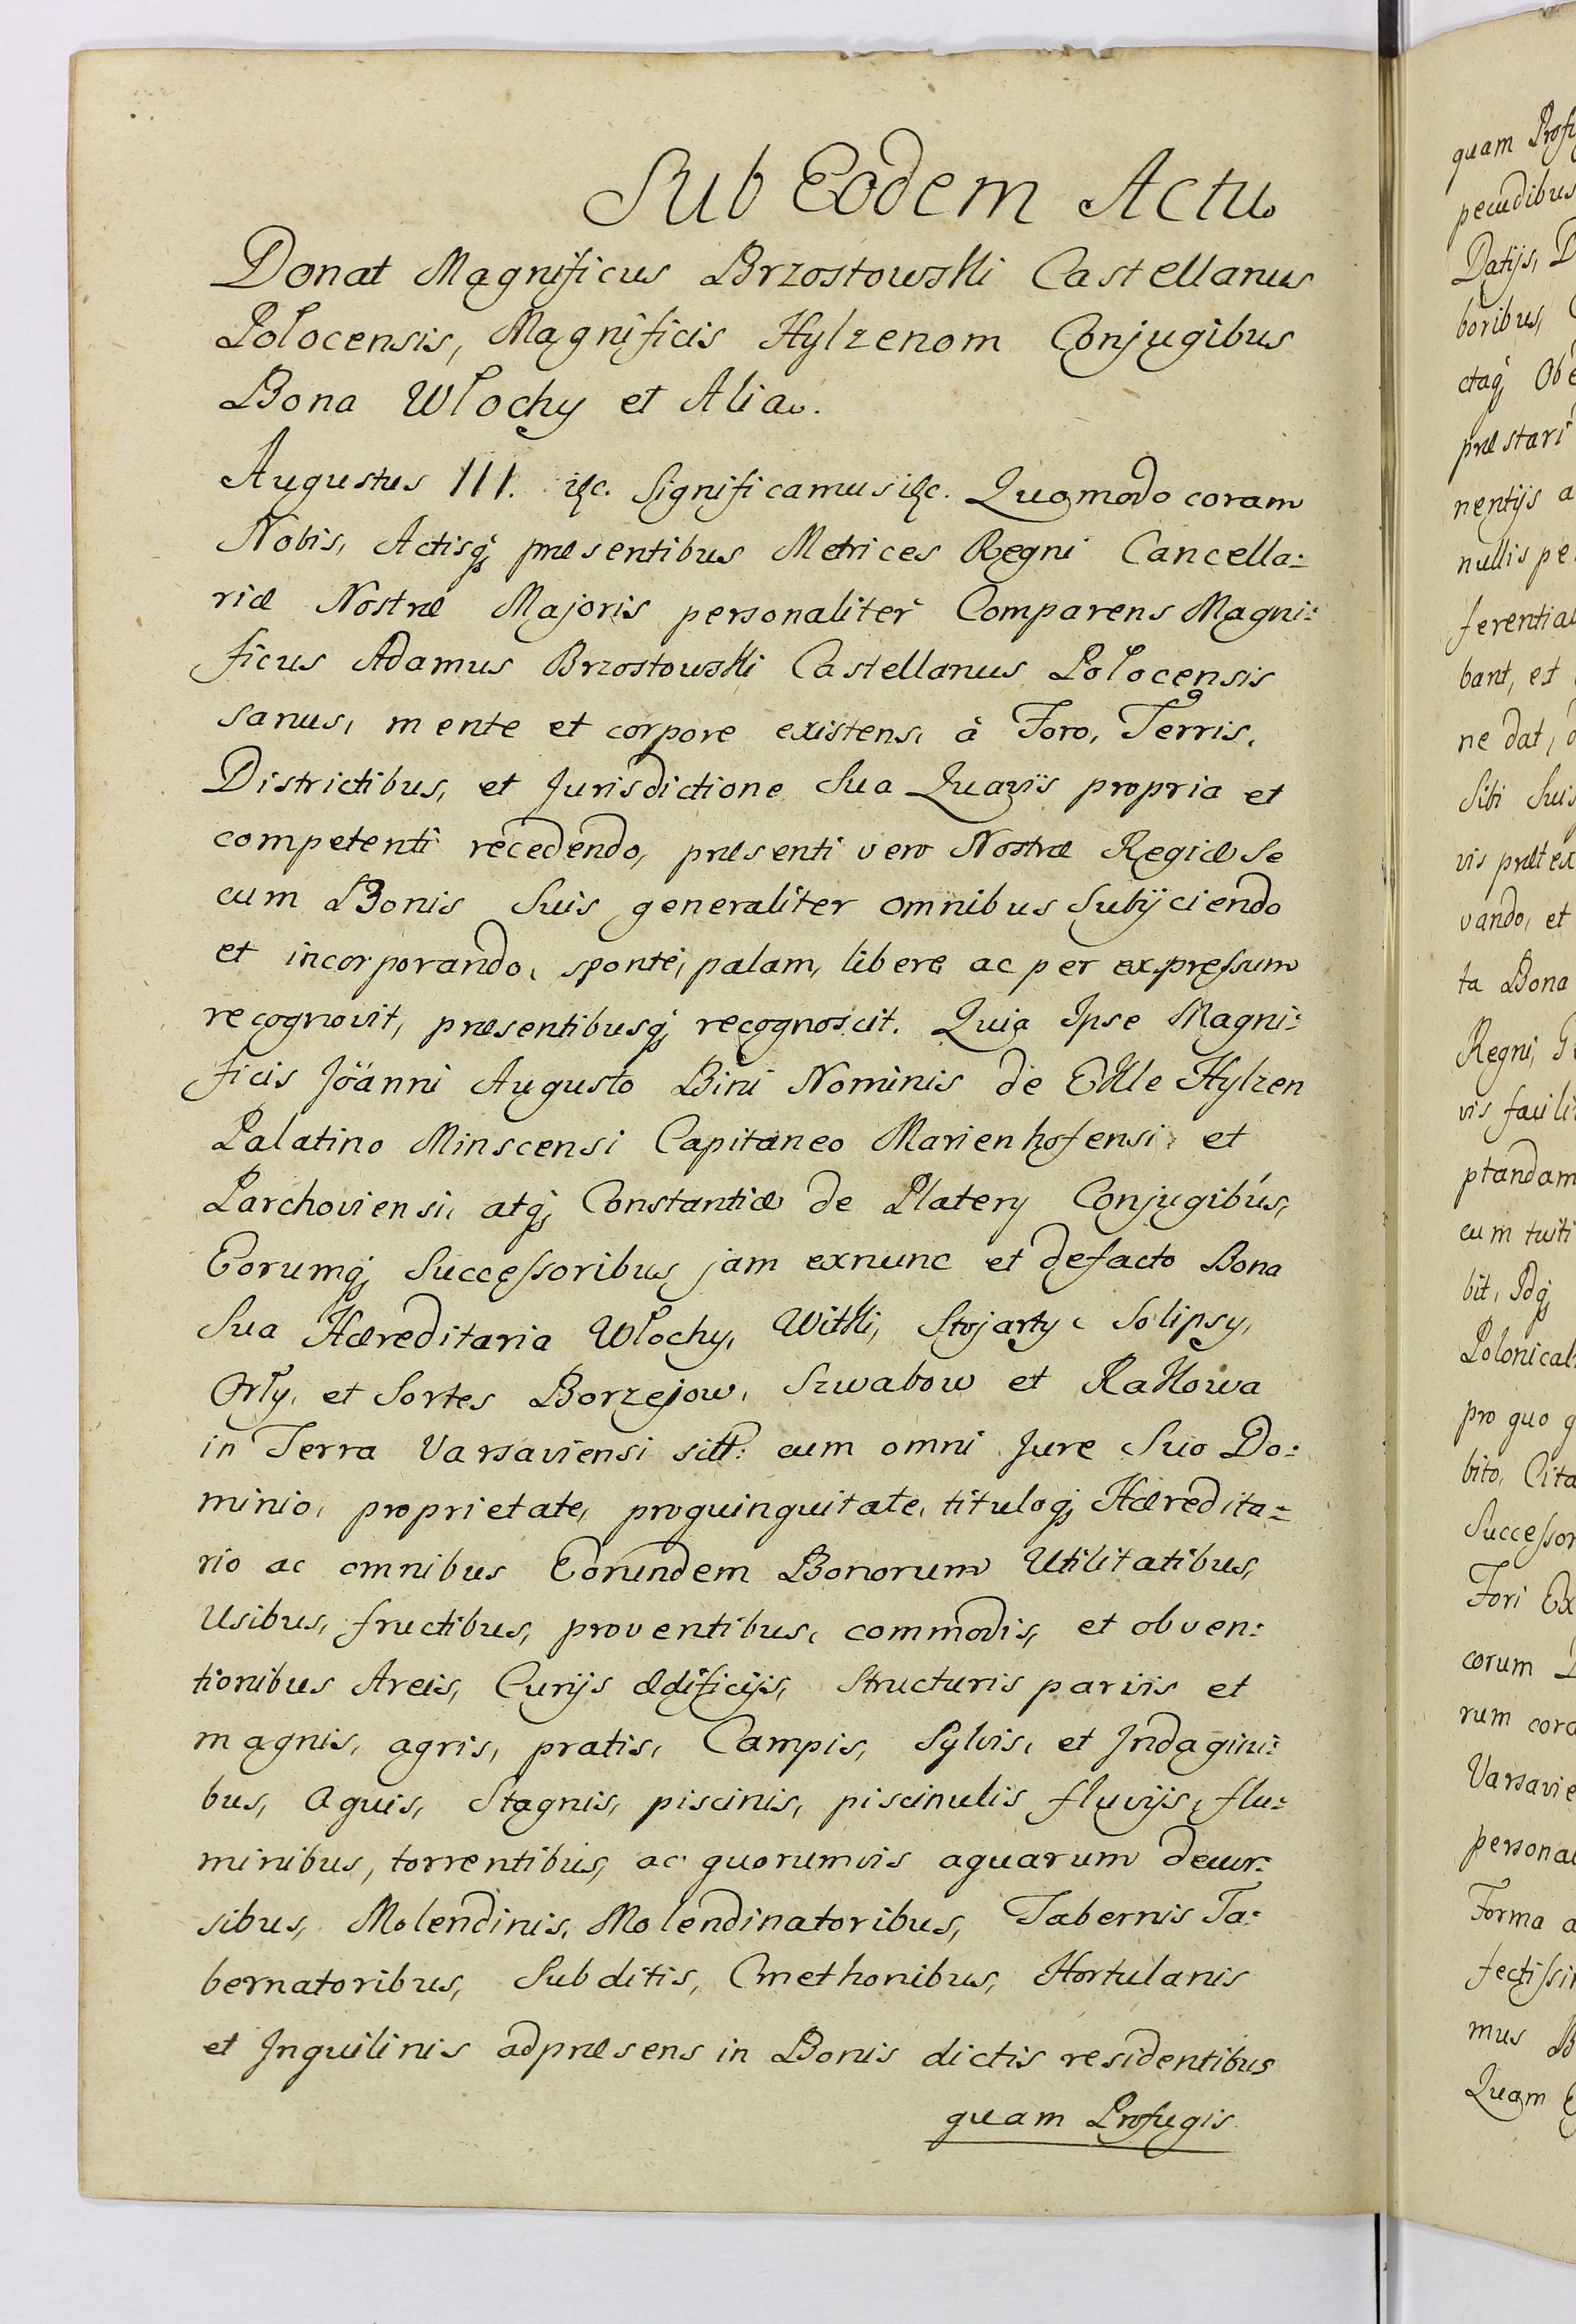 Sub Eodem Actu
Donat Magnificus Brzostowski Castellanus
Połocensis, Magnificis Hylzenom Conjugibus
Bona Włochy et Alia.
Augustus III. &c. Significamus &c. Quomodo coram
Nobis, Actisq; præsentibus Metrices Regni Cancella:
riæ Nostræ Majoris personaliter Comparens Magni:
ficus Adamus Brzostowski Castellanus Połocensis
sanus, mente et corpore existens, à Foro, Terris,
Districtibus, et Jurisdictione Sua Quavis propria et
competenti recedendo, præsenti vero Nostræ Regiæ Se
cum Bonis Suis generaliter omnibus Subijciendo
et incorporando, sponte, palam, libere ac per expressum
recognovit, præsentibusq; recognoscit. Quia Ipse Magni:
ficis Joanni Augusto Bini Nominis de Ekle Hylzen
Palatino Minscensi Capitaneo Marienhofensi, et
Parchoviensi, atq; Constantiæ de Platery Conjugibus,
Eorumq; Successoribus jam exnunc et defacto Bona
Sua Hæreditaria Włochy, Witki, Stojarty, Solipsy,
Orły, et Sortes Borzejow, Szwabow et Rakowa
in Terra Varsaviensi sitt: cum omni Jure Suo Do:
minio, proprietate, proquinquitate, tituloq; Hæredita:
rio ac omnibus Eorundem Bonorum Utilitatibus,
Usibus, fructibus, proventibus, commodis, et obven:
tionibus Areis, Curijs ædificijs, Structuris parvis et
magnis, agris, pratis, Campis, Sylvis, et Indagini:
bus, Aquis, Stagnis, piscinis, piscinulis fluvijs, flu:
minibus, torrentibus, ac quorumvis aquarum decur:
sibus, Molendinis, Molendinatoribus, Tabernis Ta:
bernatoribus, Subditis, Cmethonibus, Hortulanis
et Inquilinis adpræsens in Bonis dictis residentibus
quam Profugis
quam
pecudibus
Datijs,
boribus,
ctaq;
præstari
nentijs
nullis
bant, et
ne dat,
Sibi
vis
vando, et
ta Bona
Regni,
vis
ptandam
cum
bit, Idq;
pro quo
bito,
Fori
corum
rum
Forma
mus
Quam